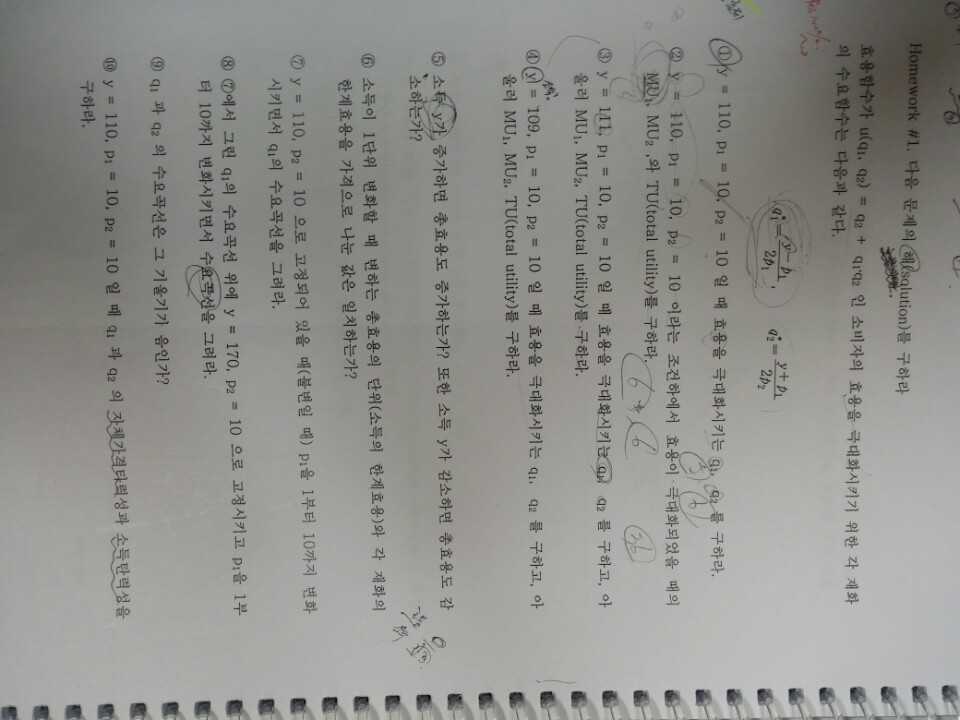 Homework #1. 다음 문제의 해(solution)를 구하라
효용함수가 u(q₁, q₂) = q₂ + q₁q₂ 인 소비자의 효용을 극대화시키기 위한 각 재화
의 수요함수는 다음과 같다.
q₁* = (y − p₁)/2p₁, q₂* = (y + p₁)/2p₂
① y = 110, p₁ = 10, p₂ = 10 일 때 효용을 극대화시키는 q₁, q₂를 구하라.
⑤ ⑥
② y = 110, p₁ = 10, p₂ = 10 이라는 조건하에서 효용이 극대화되었을 때의
MU₁, MU₂ ,와 TU(total utility)를 구하라.
6 6 36
③ y = 111, p₁ = 10, p₂ = 10 일 때 효용을 극대화시키는 q₁, q₂ 를 구하고, 아
울러 MU₁, MU₂, TU(total utility)를 구하라.
④ y = 109, p₁ = 10, p₂ = 10 일 때 효용을 극대화시키는 q₁, q₂ 를 구하고, 아
울러 MU₁, MU₂, TU(total utility)를 구하라.
⑤ 소득 y가 증가하면 총효용도 증가하는가? 또한 소득 y가 감소하면 총효용도 감
소하는가?
⑥ 소득이 1단위 변화할 때 변하는 총효용의 단위(소득의 한계효용)와 각 재화의
한계효용을 가격으로 나눈 값은 일치하는가?
⑦ y = 110, p₂ = 10 으로 고정되어 있을 때(불변일 때) p₁을 1부터 10까지 변화
시키면서 q₁의 수요곡선을 그려라.
⑧ ⑦에서 그린 q₁의 수요곡선 위에 y = 170, p₂ = 10 으로 고정시키고 p₁을 1부
터 10까지 변화시키면서 수요곡선을 그려라.
⑨ q₁ 과 q₂ 의 수요곡선은 그 기울기가 음인가?
⑩ y = 110, p₁ = 10, p₂ = 10 일 때 q₁ 과 q₂ 의 자체가격탄력성과 소득탄력성을
구하라.